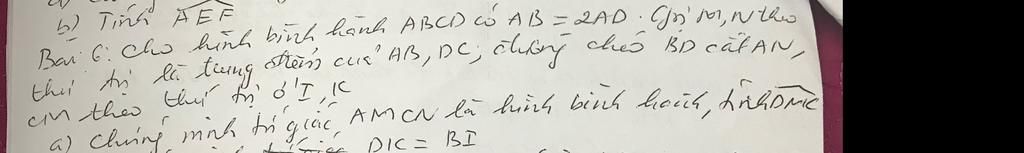 b) Tính AEF
Bài 6: Cho hình bình hành ABCD có AB = 2AD. Gọi M, N theo
thứ tự là trung điểm của AB, DC; đường chéo BD cắt AN,
CM theo thứ tự ở I, K
a) Chứng minh tứ giác AMCN là hình bình hành, tính DMC
DK = BI